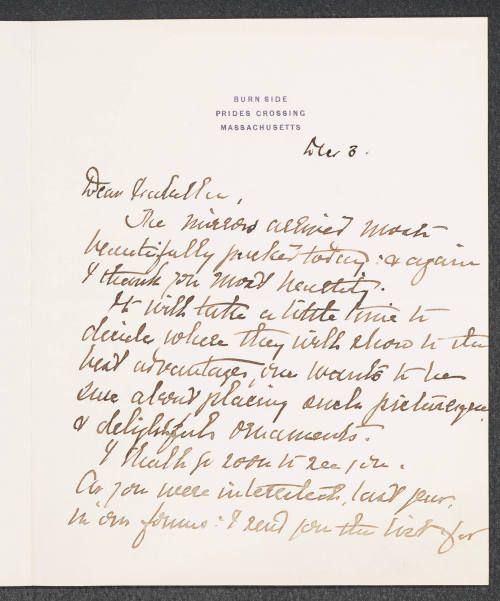 BURN SIDE
PRIDES CROSSING
MASSACHUSETTS
Dec 3.
Dear Isabella,
The mirrors arrived most
beautifully packed today: & again
I thank you most heartily.
It will take a little time to
decide where they will show to the
best advantage, one wants to be
sure about placing such picturesque
& delightful ornaments.
I shall go soon to see you.
As you were interested, last year,
in our farms: I send you the list for